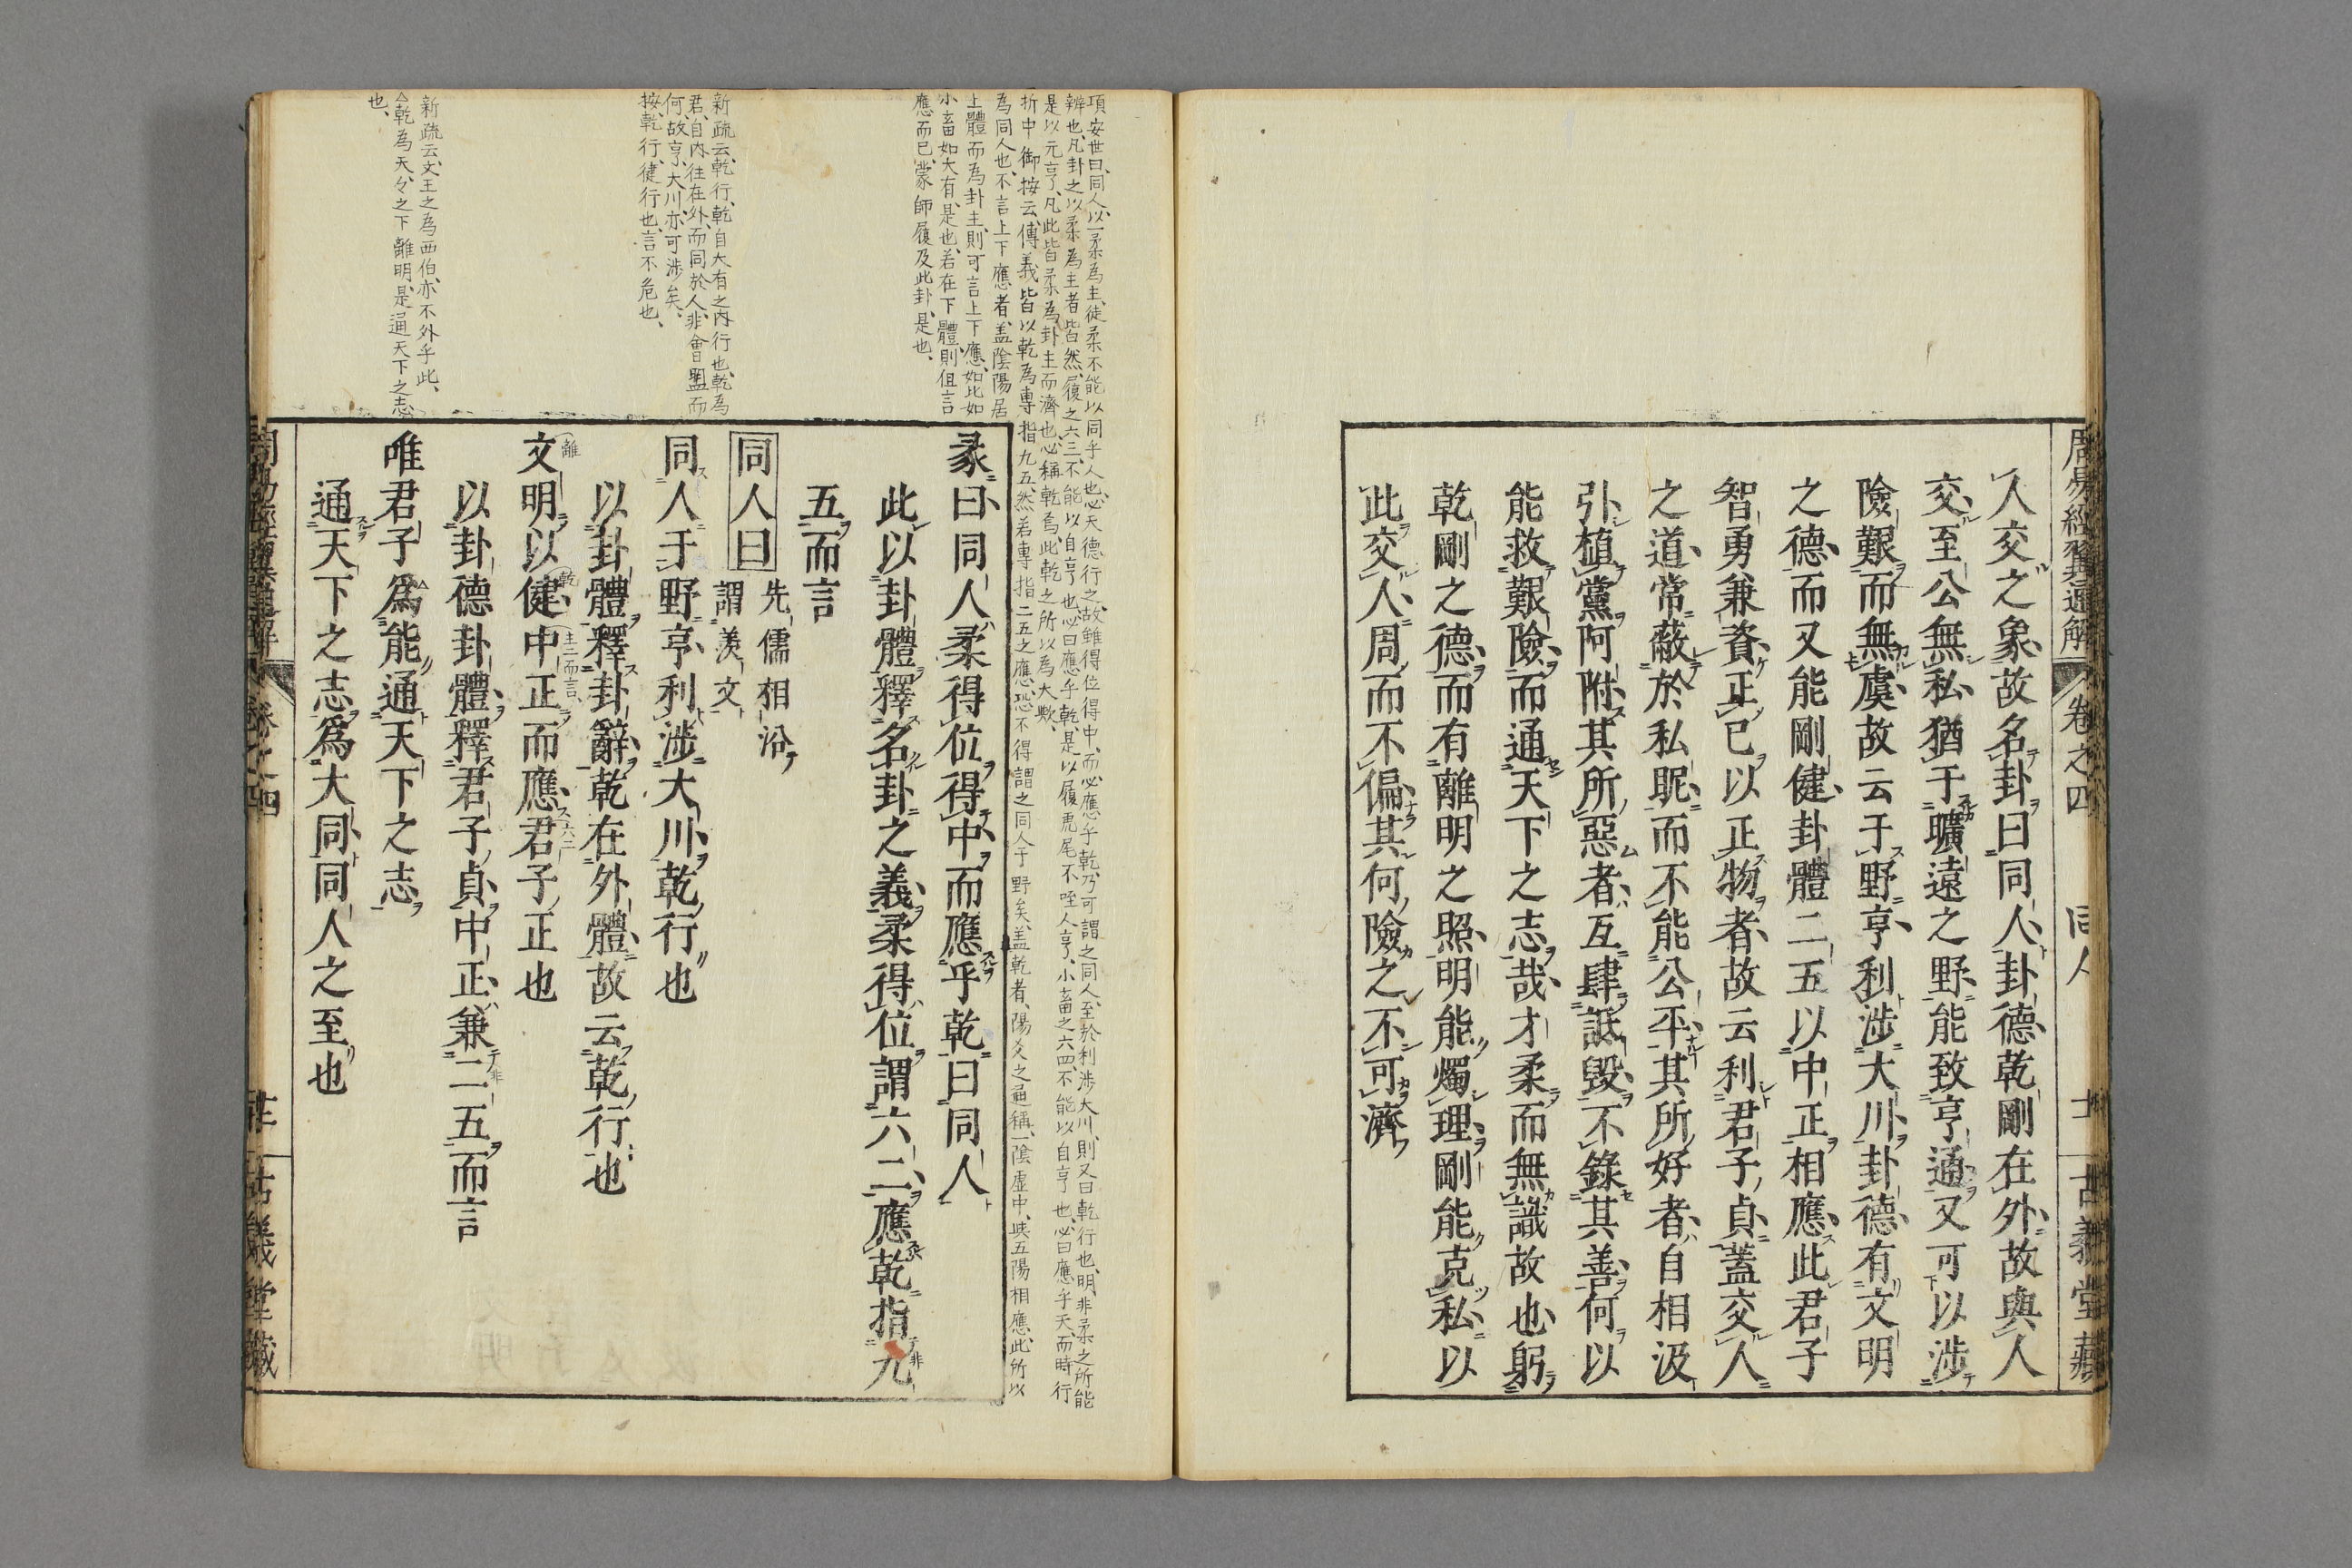 周易經翼通解
卷之四
同人
十一
古義堂藏
人交之象故名卦曰同人卦德乾剛在外故與人
交至公無私猶于曠遠之野能致亨通又可以涉
險艱而無虞故云于野亨利涉大川卦德有文明
之德而又能剛健卦體二五以中正相應此君子
智勇兼資正已以正物者故云利君子貞蓋交人
之道常蔽於私昵而不能公平其所好者自相汲
引植黨阿附其所惡者互肆詆毀不錄其善何以
能救艱險而通天下之志哉才柔而無識故也躬
乾剛之德而有離明之照明能燭理剛能克私以
此交人周而不偏其何險之不可濟
項安世曰同人以一柔為主徒柔不能以同乎人也必天德行之故雖得位得中而必應乎乾乃可謂之同人至於利涉大川則又曰乾行也明非柔之所能
辨也凡卦之以柔為主者皆然履之六三不能以自亨也必曰應乎乾是以履虎尾不咥人亨小畜之六四不能以自亨也必曰應乎天而時行
是以元亨凡此皆柔為卦主而濟也必稱乾焉此乾之所以為大歟
折中御按云傳義皆以乾為專指九五然若專指二五之應恐不得謂之同人于野矣蓋乾者陽爻之通稱一陰虛中與五陽相應此所以
為同人也不言上下應者蓋陰陽居
上體而為卦主則可言上下應如比如
小畜如大有是也若在下體則但言
應而已蒙師履及此卦是也
彖曰同人柔得位得中而應乎乾曰同人
此以卦體釋名卦之義柔得位謂六二應乾指九
五而言
同人曰
先儒相沿
謂羨文
新疏云乾行乾自大有之內行也乾為
君自內往在外而同於人非會盟而
何故亨大川亦可涉矣
按乾行健行也言不危也
同人于野亨利涉大川乾行也
以卦體釋卦辭乾在外體故云乾行也
文明以健中正而應君子正也
離
乾
主三而言
六二
以卦德卦體釋君子貞中正兼二五而言
新疏云文王之為西伯亦不外乎此
乾為天々之下離明是通天下之志
也
唯君子爲能通天下之志
通天下之志爲大同同人之至也
卷之四
古義堂藏